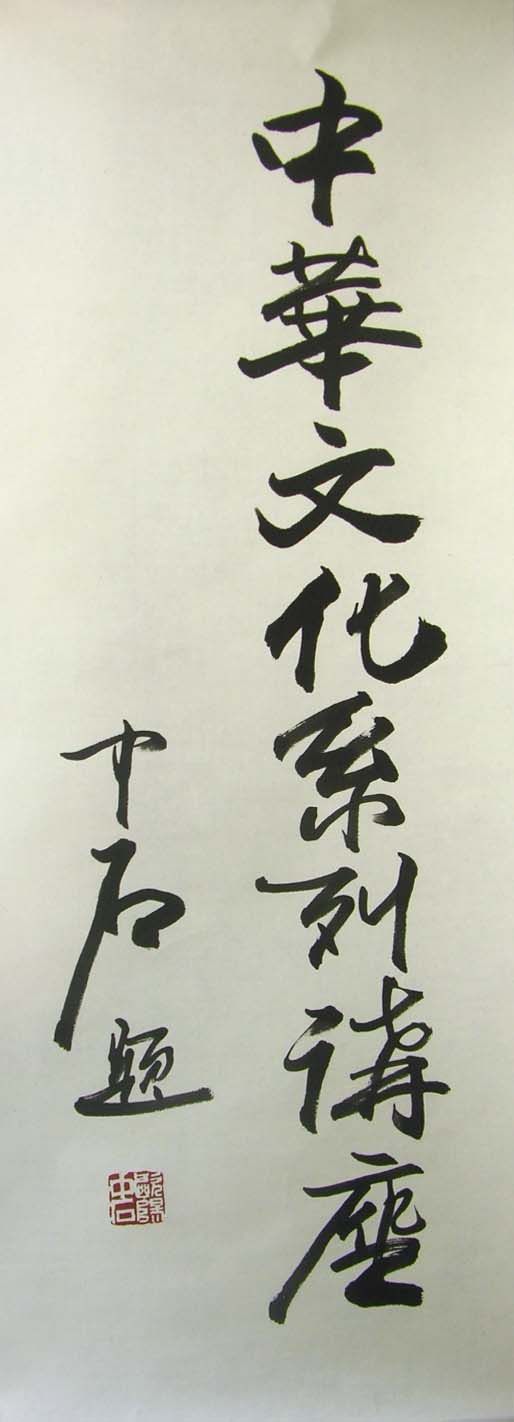 中華文化系列講座
中石題
歐陽中石